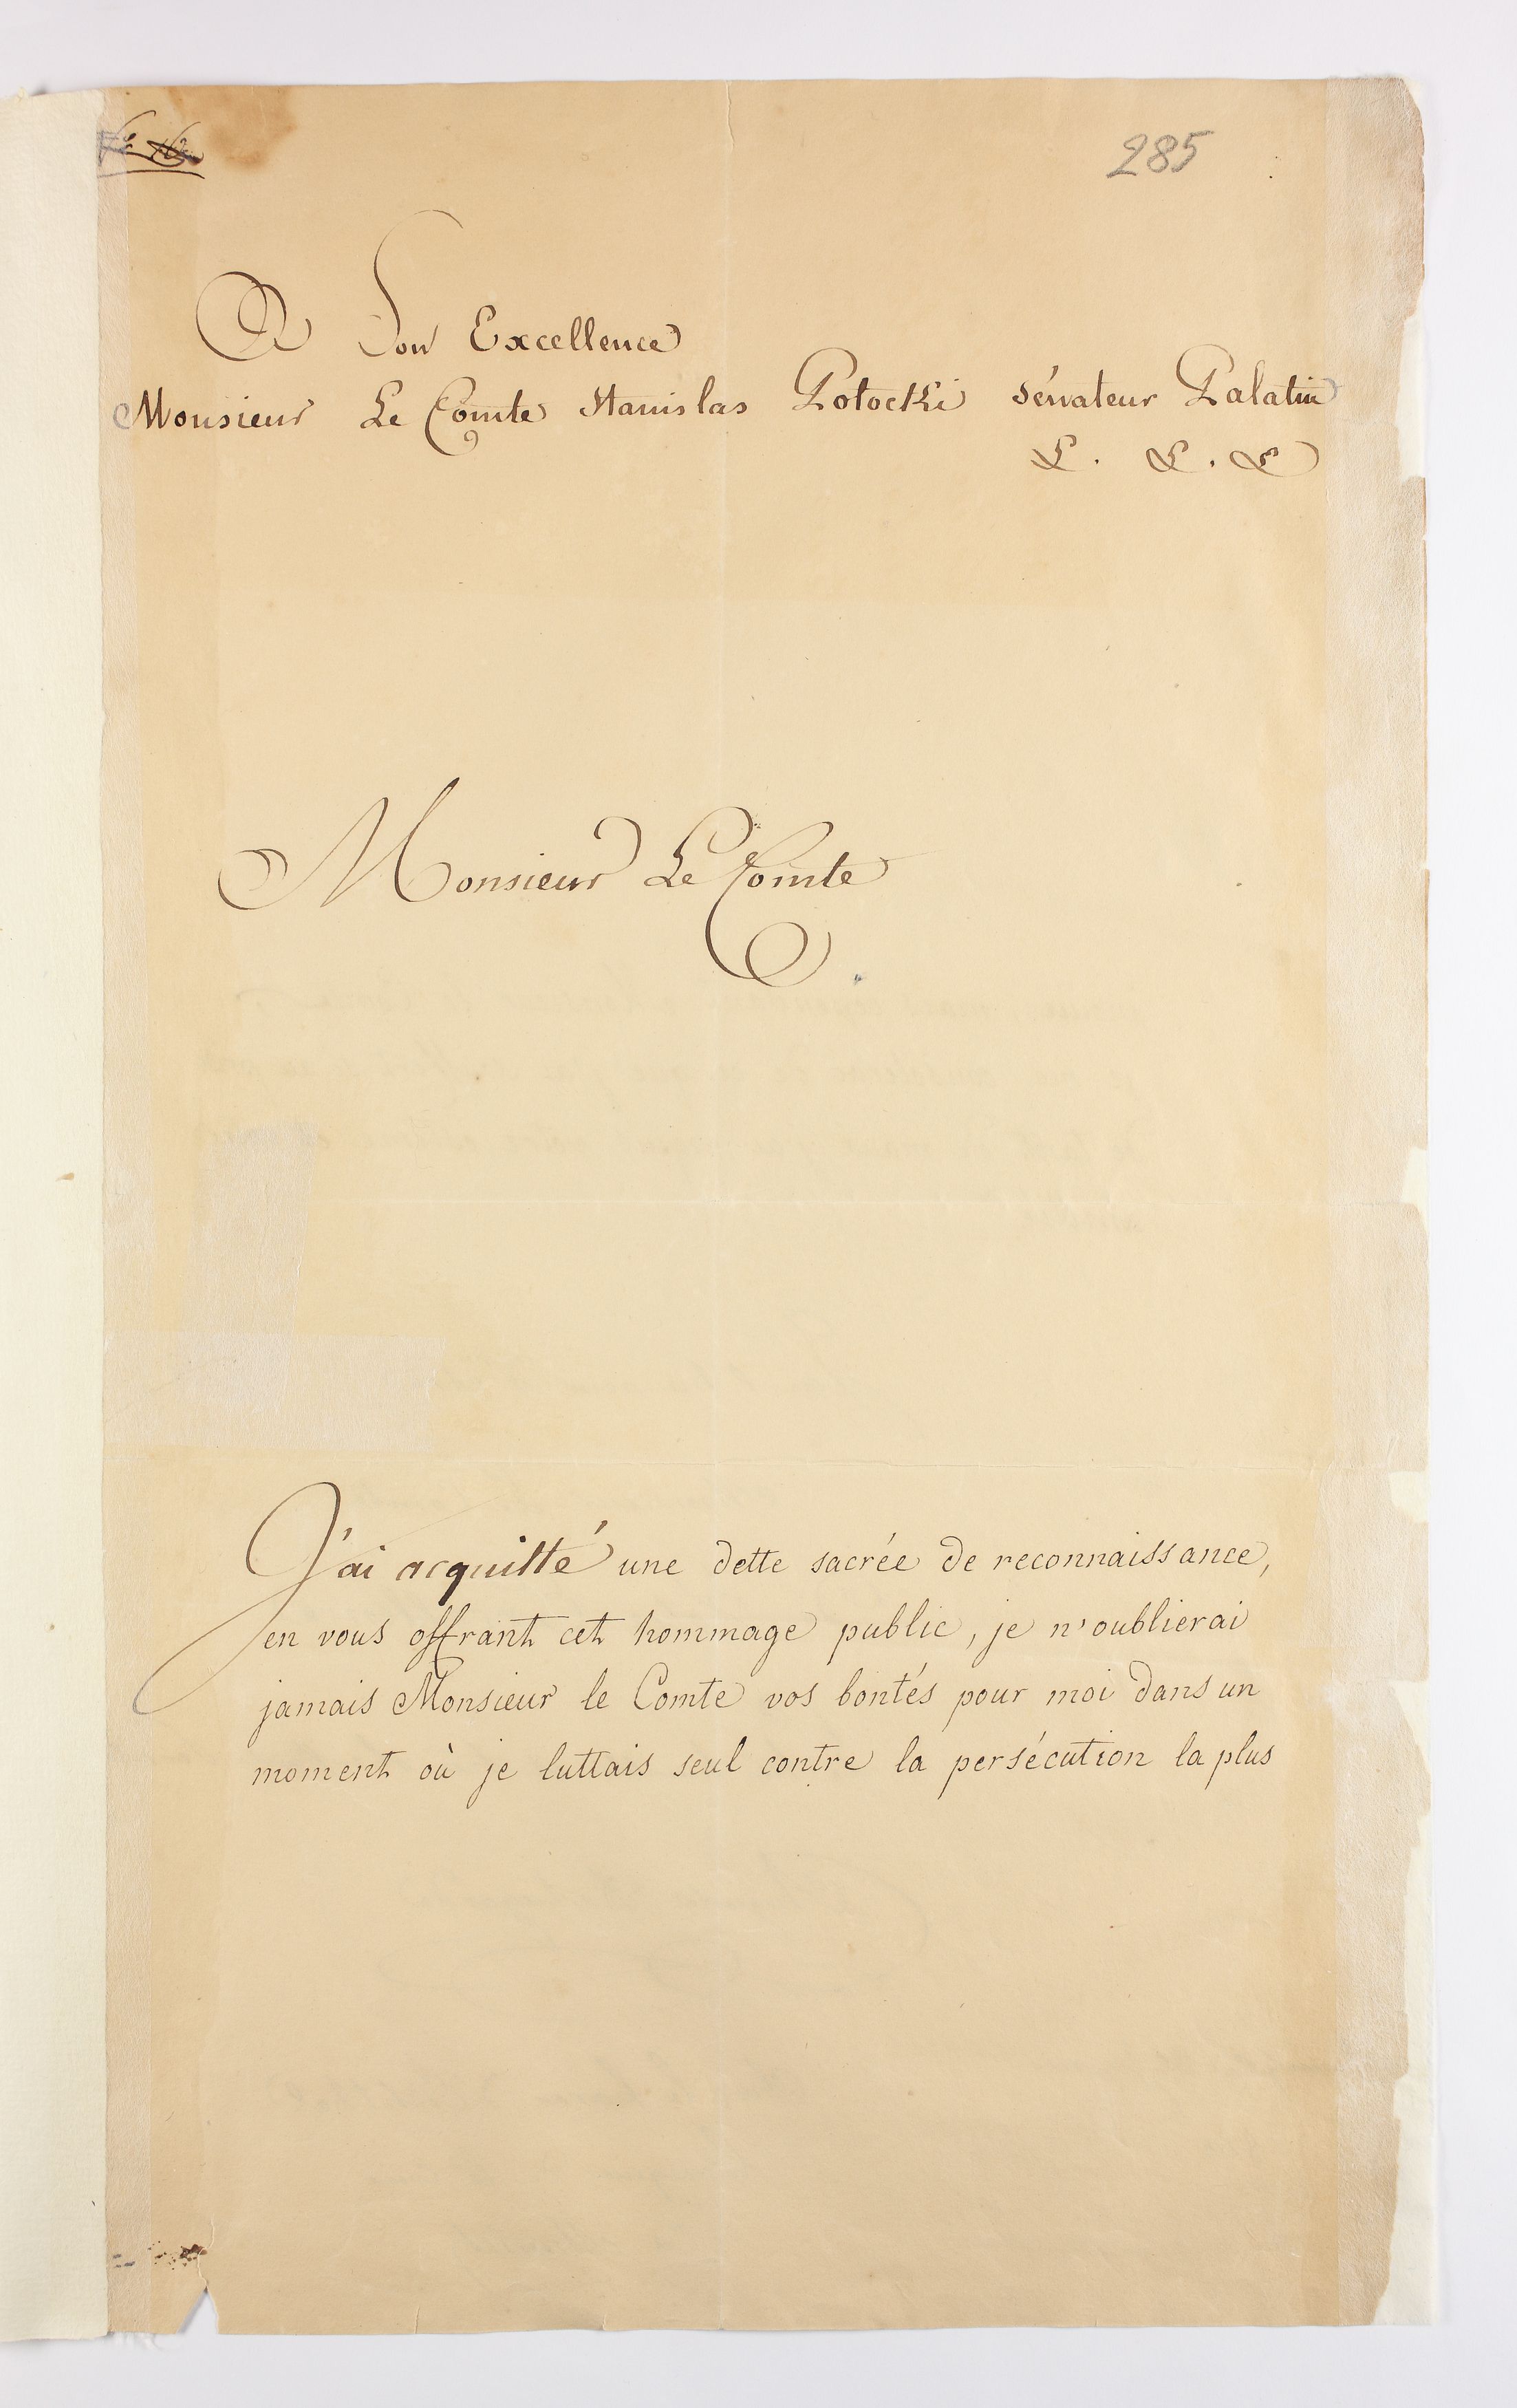 285
A Son Excellence
Monsieur Le Comte Stanislas Potocki sénateur Palatin
&. &. &
Monsieur Le Comte
J'ai acquitté une dette sacrée de reconnaissance,
en vous offrant cet hommage public, je n'oublierai
jamais Monsieur le Comte vos bontés pour moi dans un
moment où je luttais seul contre la persécution la plus